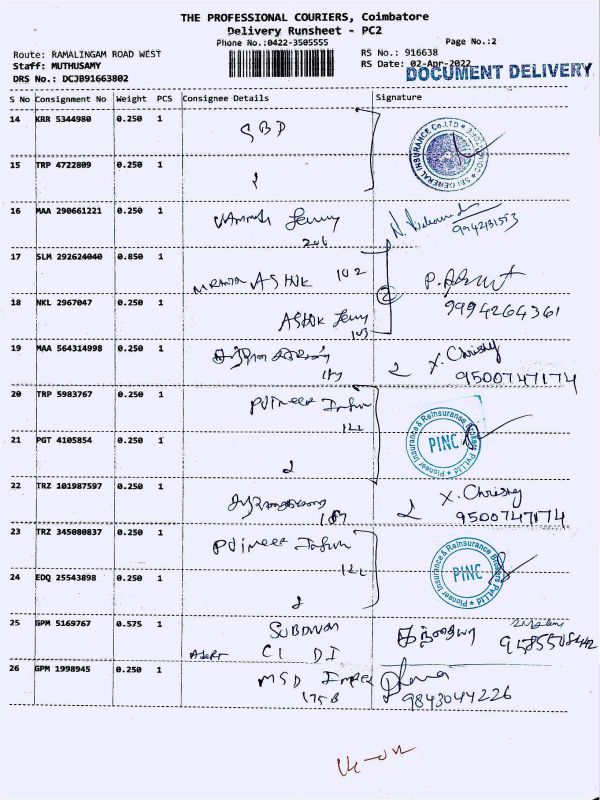 THE PROFESSIONAL COURIERS, Coimbatore
Delivery Runsheet - PC2
Phone No.:0422-3505555
Page No.:2
Route: RAMALINGAM ROAD WEST
RS No.: 916638
Staff: MUTHUSAMY
RS Date: 02-Apr-2022
DOCUMENT DELIVERY
DRS No.: DCJB91663802
S No Consignment No Weight PCS Consignee Details Signature
14 KRR 5344980 0.250 1 SBD
SBI GENERAL INSURANCE Co.LTD
15 TRP 4722809 0.250 1
16 MAA 290661221 0.250 1
206
9942131553
17 SLM 292624040 0.850 1 ASHOK 102
2
18 NKL 2967047 0.250 1 ASHOK
103
9994264361
19 MAA 564314998 0.250 1 2 X. Christy
9500747174
20 TRP 5983767 0.250 1
122
Pioneer Insurance & Reinsurance Brokers Pvt.Ltd
PINC
21 PGT 4105854 0.250 1
2
22 TRZ 101987597 0.250 1 2 X. Christy
9500747174
23 TRZ 345080837 0.250 1
122
Pioneer Insurance & Reinsurance Brokers Pvt.Ltd
PINC
24 EDQ 25543898 0.250 1
2
25 GPM 5169767 0.575 1
26 GPM 1998945 0.250 1 MSD Impex
175 B
9843044226